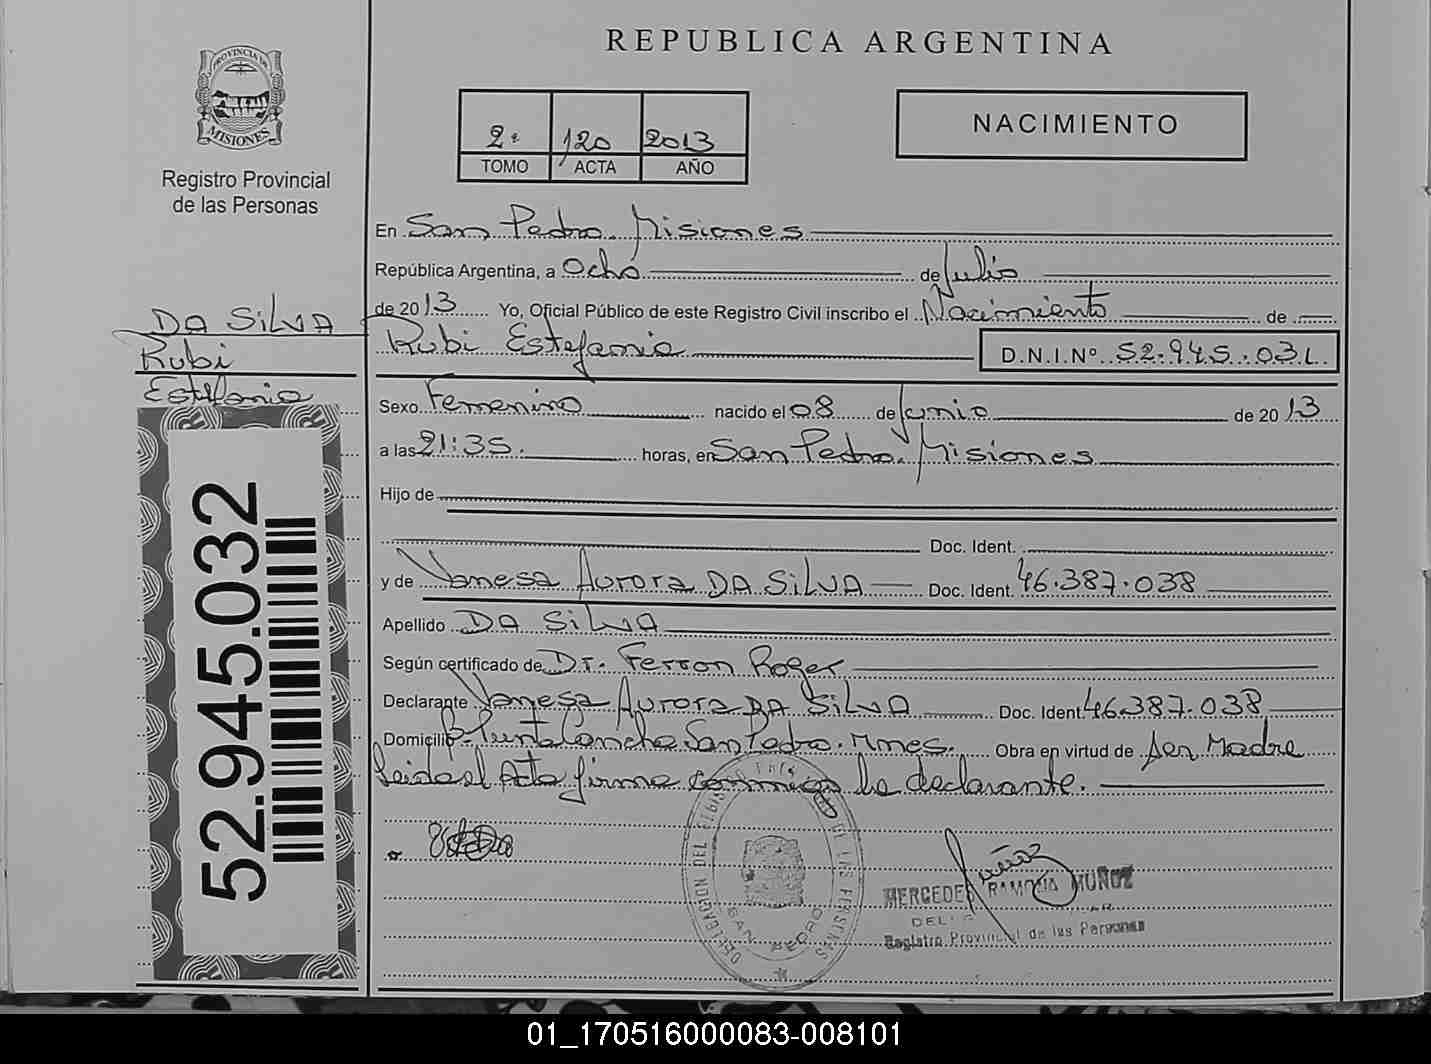 REPUBLICA ARGENTINA
PROVINCIA DE
MISIONES
Registro Provincial
de las Personas
2ª 120 2013
TOMO ACTA AÑO
NACIMIENTO
En San Pedro Misiones
República Argentina, a Ocho de Julio
de 2013 Yo, Oficial Público de este Registro Civil inscribo el Nacimiento de
Rubi Estefania D.N.I.Nº 52.945.032
DA SILVA
Rubi
Estefania
52.945.032
Sexo Femenino nacido el 08 de Junio de 2013
a las 21:35. horas, en San Pedro. Misiones
Hijo de
Doc. Ident.
y de Vanesa Aurora DA SILVA Doc. Ident. 46.387.038
Apellido DA SILVA
Según certificado de Dr. Ferron Roger
Declarante Vanesa Aurora DA SILVA Doc. Ident. 46.387.038
Domicilio San Pedro. Mnes. Obra en virtud de ser Madre
Leida el Acta firma conmigo la declarante.
DELEGACION DEL REGISTRO PROVINCIAL DE LAS PERSONAS
SAN PEDRO
MERCEDES RAMONA MUÑOZ
Registro Provincial de las Personas
01_170516000083-008101